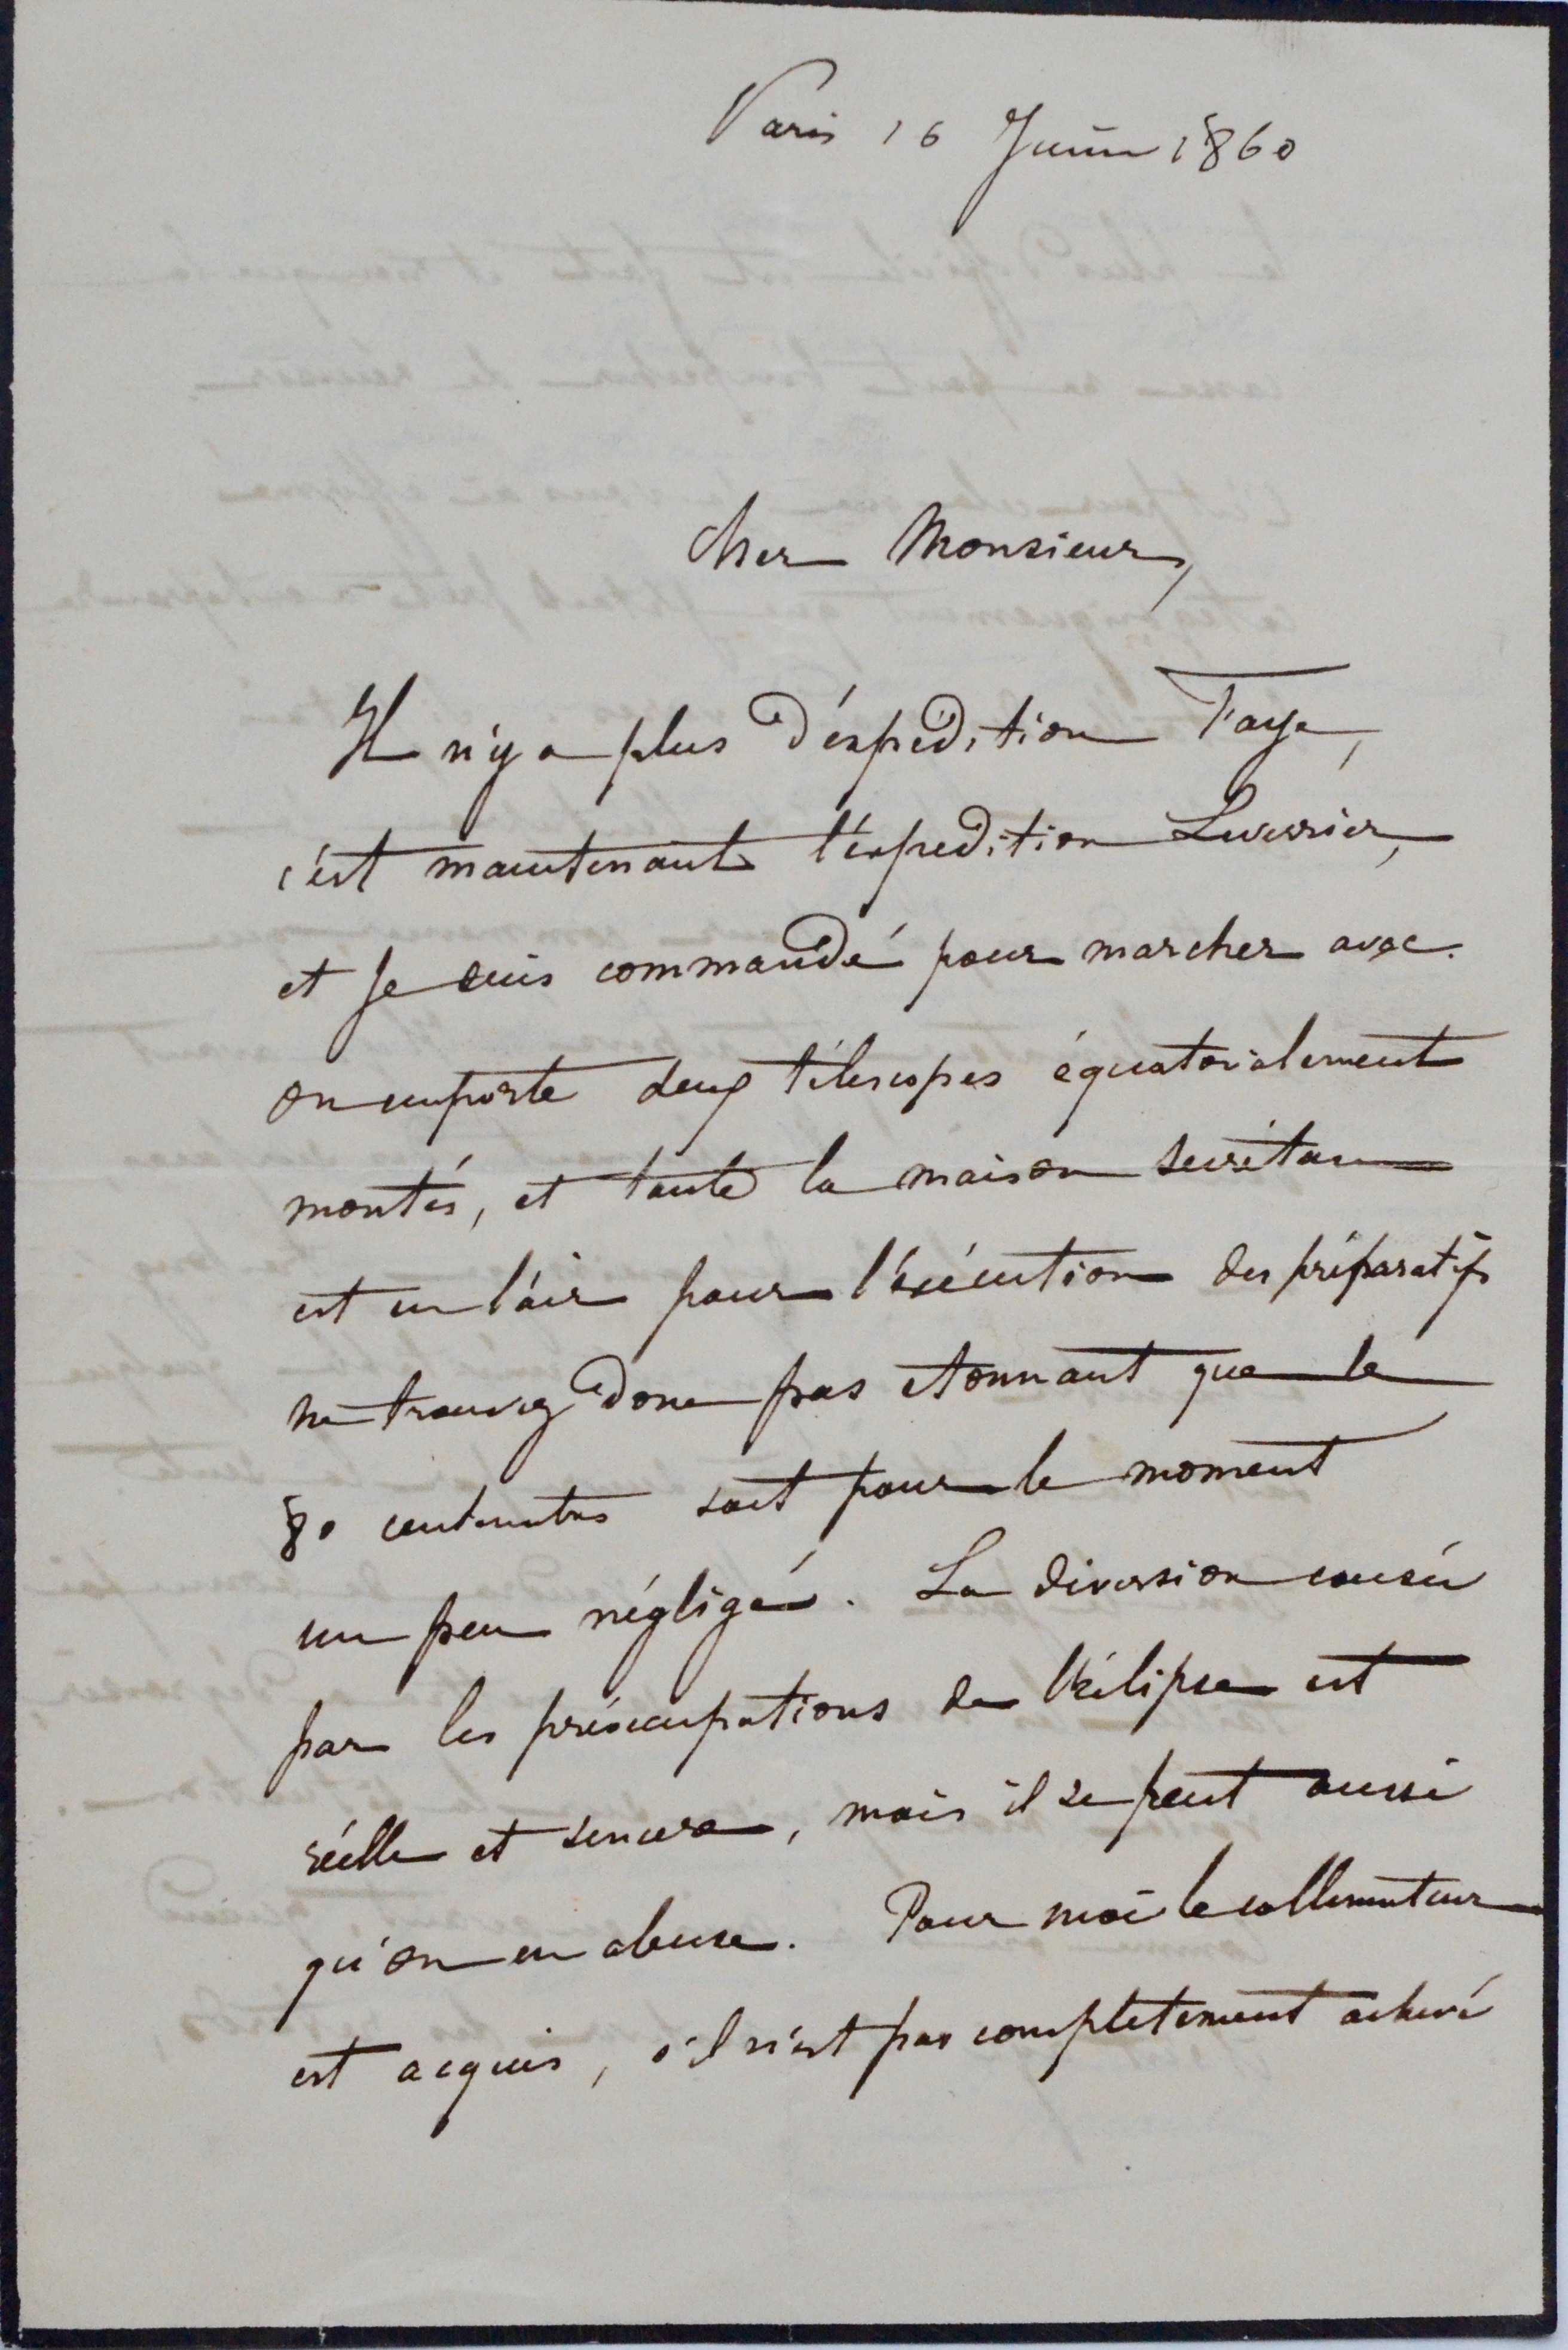 Paris 16 Juin 1860
Cher Monsieur,
Il n'y a plus d'expédition Faye,
c'est maintenant l'expedition Leverrier,
et je suis commandé pour marcher avec.
On emporte deux télescopes équatorialement
montés, et toute la maison Secrétan
est en l'air pour l'exécution des préparatifs
ne trouvez donc pas etonnant que le
80 centimetres soit pour le moment
un peu négligé. La diversion causée
par les préoccupations de l'éclipse est
réelle et sincere, mais il se peut aussi
qu'on en abuse. Pour moi le collimateur
est acquis, s'il n'est pas completement achevé